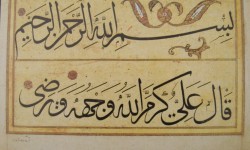 بسم الله الرحمن الرحيم
قال علي كرم الله وجهه ورضي